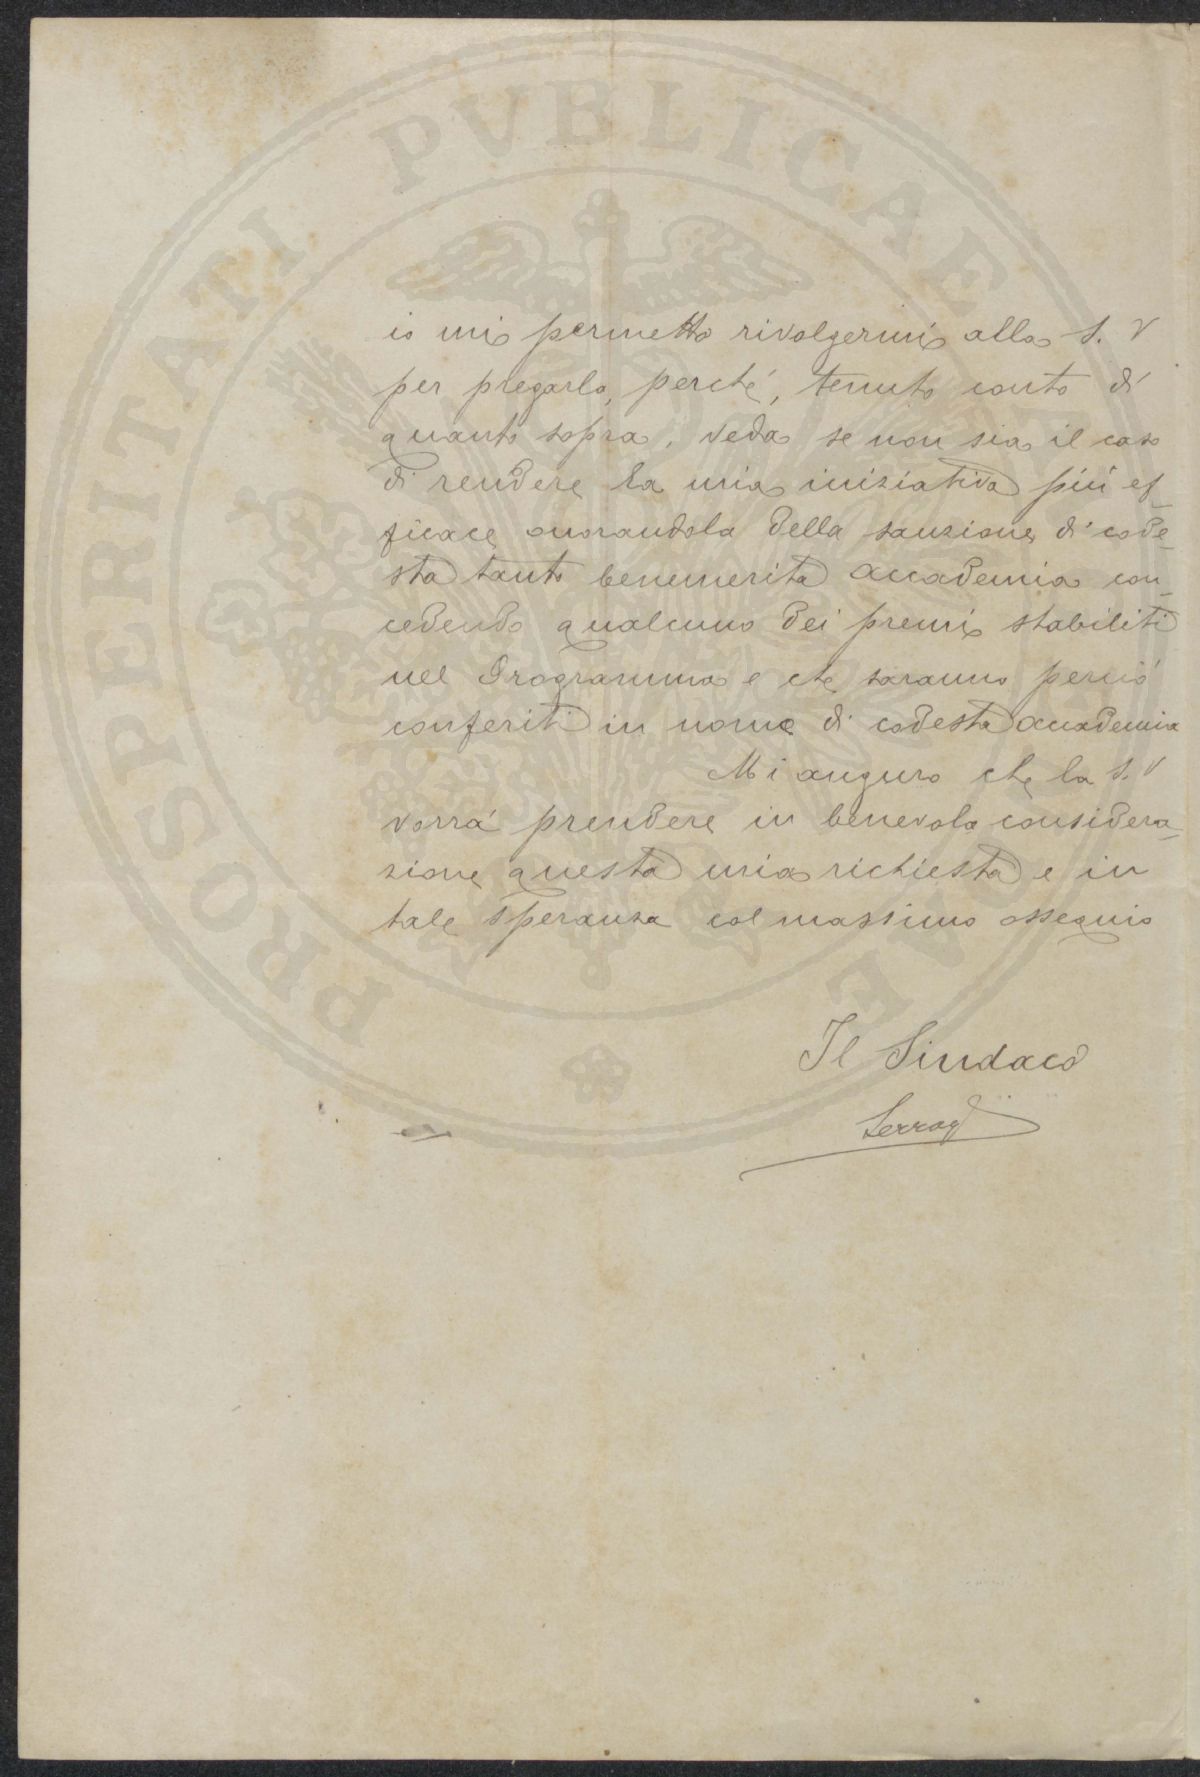 io mi permetto rivolgermi alla S. V
per pregarla, perché, tenuto conto di
quanto sopra, veda se non sia il caso
di rendere la mia iniziativa più ef-
ficace onorandola della sanzione di code-
sta tanto benemerita accademia con-
cedendo qualcuno dei premi stabiliti
nel Programma e che saranno perciò
conferiti in nome di codesta accademia
Mi auguro che la S. V
vorrà prendere in benevola considera-
zione questa mia richiesta e in
tale speranza col massimo ossequio
Il Sindaco
PROSPERITATI PVBLICAE